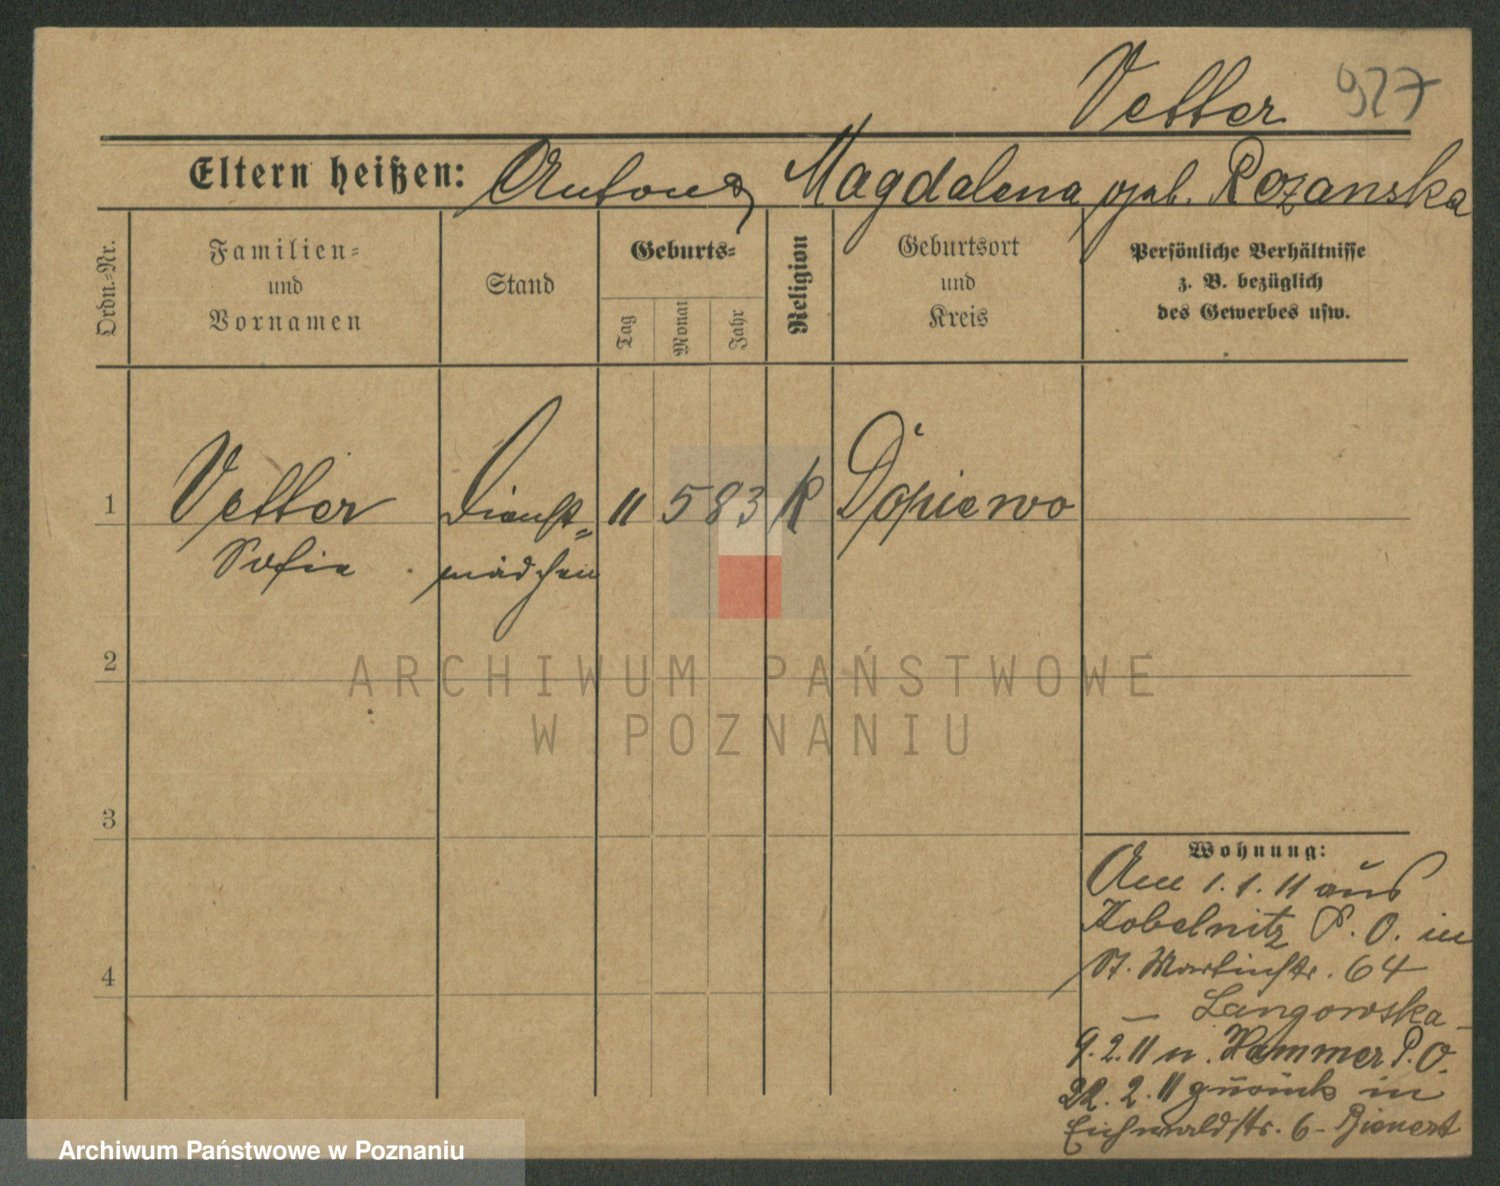 Vetter 927
Eltern heißen: Anton u Magdalena geb. Rozanska
Ordn.-Nr.
Familien-
und
Vornamen
Stand
Geburts-
Tag
Monat
Jahr
Religion
Geburtsort
und
Kreis
Persönliche Verhältnisse
z. B. bezüglich
des Gewerbes usw.
1 Vetter Dienst- 11 5 83 K Dopiewo
Sofie mädchen
2
3
4
Wohnung:
Am 1.1.11 aus
Kobelnitz P. O. in
St. Martinstr. 64
– Langowska –
9.2.11 n. Hammer P. O.
22.2.11 zurück in
Eichwaldstr. 6 - Bienert
ARCHIWUM PAŃSTWOWE
W POZNANIU
Archiwum Państwowe w Poznaniu